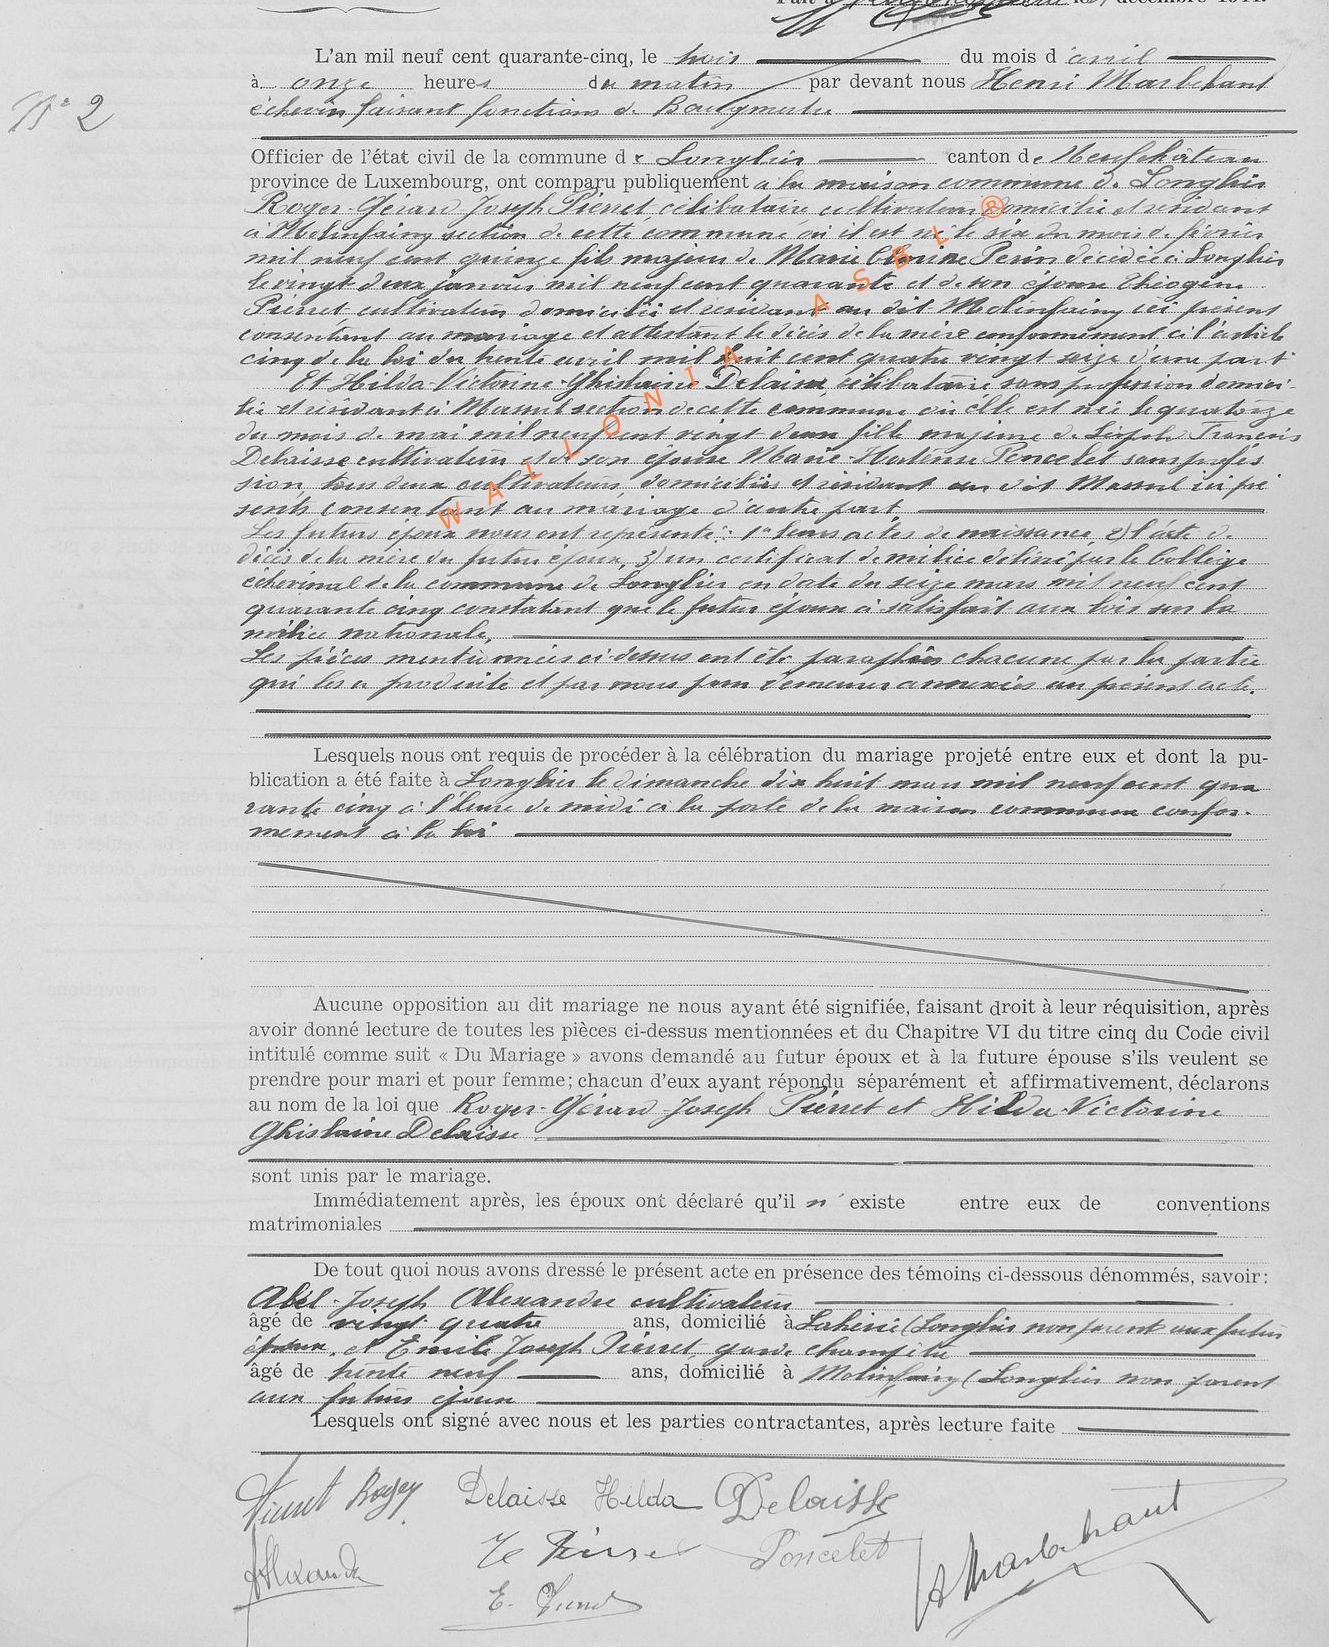 N° 2
L'an mil neuf cent quarante-cinq, le trois du mois d'avril
à onze heures du matin par devant nous Henri Marlehant
échevin faisant fonctions de Bourgmestre
Officier de l'état civil de la commune de Longlier canton de Neufchâteau
province de Luxembourg, ont comparu publiquement à la maison commune de Longlier
Roger-Gérard-Joseph Pierret, célibataire cultivateur domicilié et résidant
à Molinfaing section de cette commune où il est né le six du mois de février
mil neuf cent quinze fils majeur de Marie Perin décédée à Longlier
le vingt deux janvier mil neuf cent quarante et de son époux Théogène
Pierret cultivateur domicilié et résidant au dit Molinfaing ici présent
consentant au mariage et attestant le décès de la mère conformément à l'article
cinq de la loi du trente avril mil huit cent quatre vingt seize d'une part
Et Hilda-Victorine-Ghislaine Delaisse, célibataire sans profession domici-
liée et résidant à Massul section de cette commune où elle est née le quatorze
du mois de mai mil neuf cent vingt deux fille majeure de Joseph-François
Delaisse cultivateur et de son épouse Marie-Hortense Poncelet sans profes
sion, tous deux cultivateurs, domiciliés et résidant au dit Massul ici pré
sents consentant au mariage d'autre part
Les futurs époux nous ont représenté: 1° leurs actes de naissance, 2) l'acte de
décès de la mère du futur époux, 3) un certificat de milice délivré par le Collège
échevinal de la commune de Longlier en date du seize mars mil neuf cent
quarante cinq constatant que le futur époux a satisfait aux lois sur la
milice nationale.
Les pièces mentionnées ci-dessus ont été paraphées chacune par la partie
qui les a produite et par nous pour demeurer annexées au présent acte.
Lesquels nous ont requis de procéder à la célébration du mariage projeté entre eux et dont la pu-
blication a été faite à Longlier le dimanche dix huit mars mil neuf cent qua
rante cinq à l'heure de midi à la porte de la maison commune confor-
mément à la loi
Aucune opposition au dit mariage ne nous ayant été signifiée, faisant droit à leur réquisition, après
avoir donné lecture de toutes les pièces ci-dessus mentionnées et du Chapitre VI du titre cinq du Code civil
intitulé comme suit « Du Mariage » avons demandé au futur époux et à la future épouse s'ils veulent se
prendre pour mari et pour femme; chacun d'eux ayant répondu séparément et affirmativement, déclarons
au nom de la loi que Roger-Gérard-Joseph Pierret et Hilda-Victorine
Ghislaine Delaisse
sont unis par le mariage.
Immédiatement après, les époux ont déclaré qu'il n'existe entre eux de conventions
matrimoniales
De tout quoi nous avons dressé le présent acte en présence des témoins ci-dessous dénommés, savoir:
Abel-Joseph Alexandre cultivateur
âgé de vingt quatre ans, domicilié à Lahérie (Longlier non parent aux futurs
époux, et Emile Joseph Pierret, garde champêtre
âgé de trente neuf ans, domicilié à Molinfaing (Longlier non parent
aux futurs époux
Lesquels ont signé avec nous et les parties contractantes, après lecture faite
Pierret Roger Delaisse Hilda Delaisse
Poncelet
A Alexandre
E. Pierret
WALLONIA ASBL ®